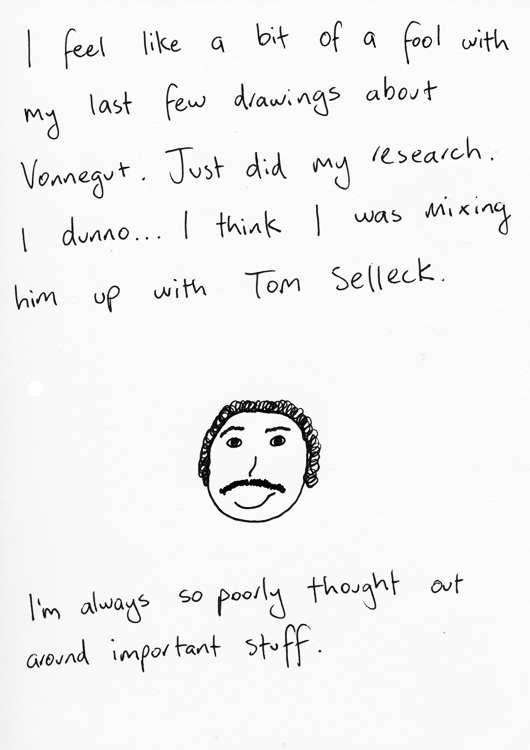 I feel like a bit of a fool with
my last few drawings about
Vonnegut. Just did my research.
I dunno... I think I was mixing
him up with Tom Selleck.
I'm always so poorly thought out
around important stuff.